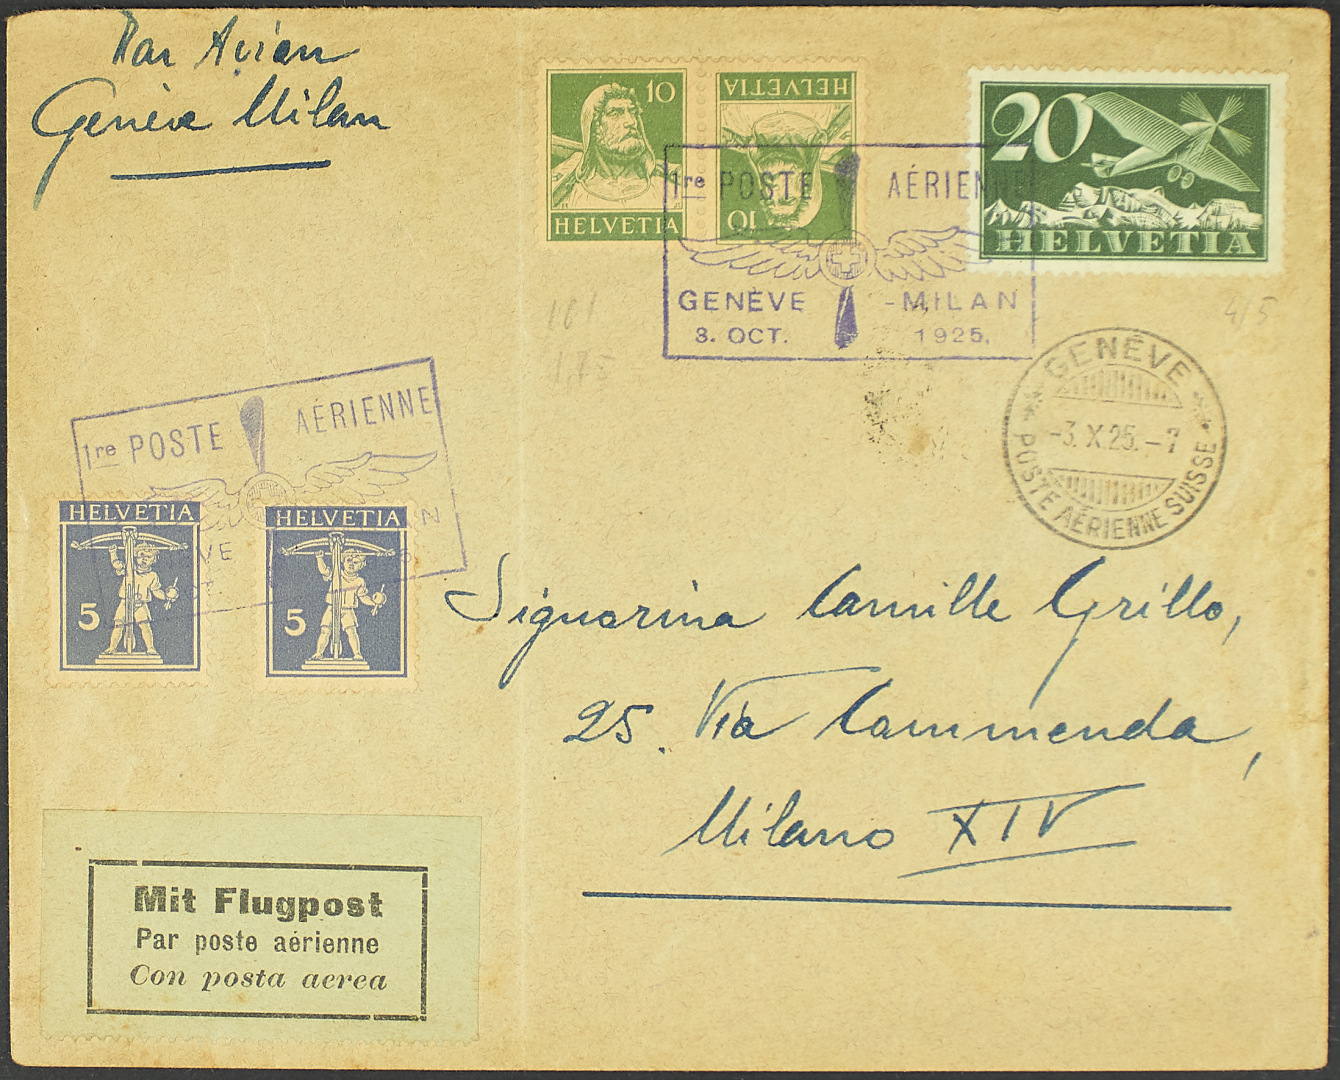 Par Avion
Genève Milan
10
HELVETIA
HELVETIA
10
20
HELVETIA
1re POSTE AÉRIENNE
GENÈVE - MILAN
3. OCT. 1925.
GENÈVE
-3. X. 25. - 7
POSTE AÉRIENNE SUISSE
1re POSTE AÉRIENNE
HELVETIA
5
HELVETIA
5
Signorina Camille Grillo,
25. Via Commenda,
Milano XIV
Mit Flugpost
Par poste aérienne
Con posta aerea